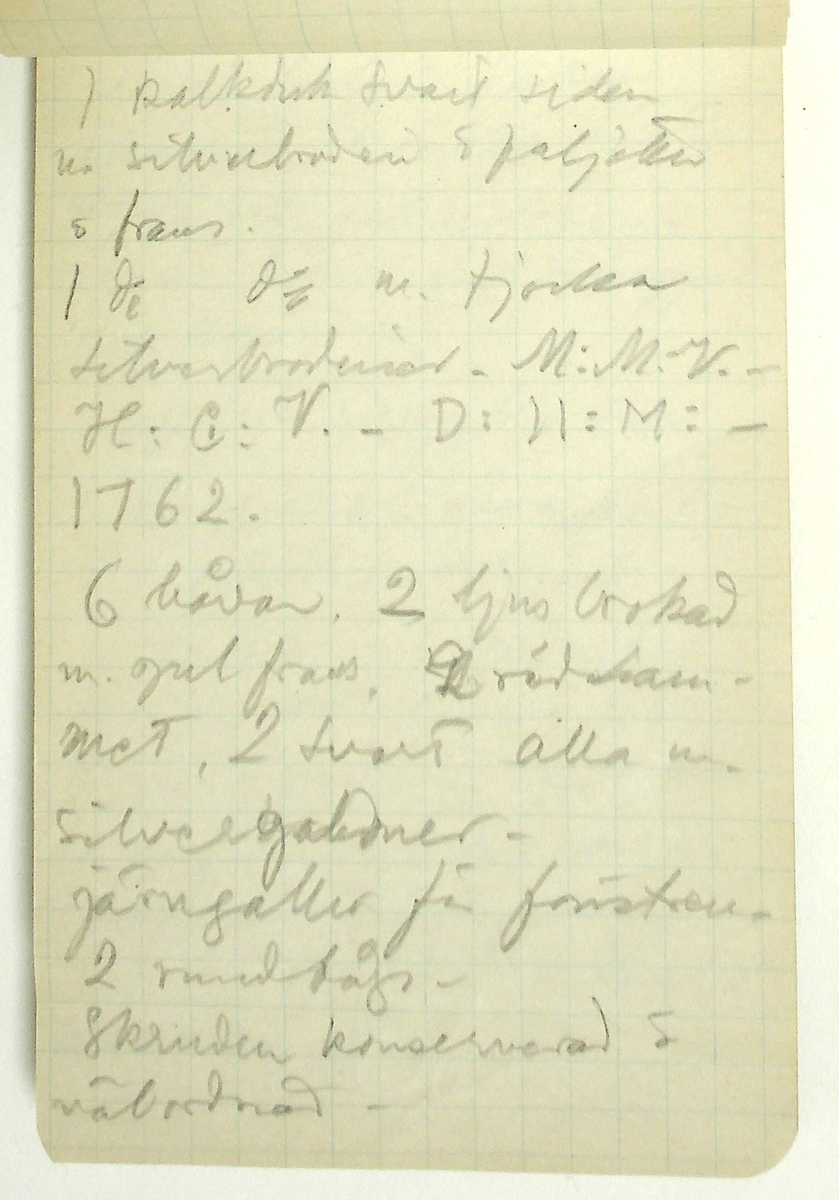 1 kalkduk svart siden
m. silverbroderi & paljetter
& frans.
1 d:o d:o m. tjocka
silverbroderier - M: M: V. -
H: C: V. - D: H: M: -
1762.
6 håvar. 2 ljus brokad
m. gul frans, 2 röd sam-
met, 2 svart alla m.
silvergaloner -
järngaller för fönstren.
2 rundbågs -
Skruden konserverad &
välordnad -